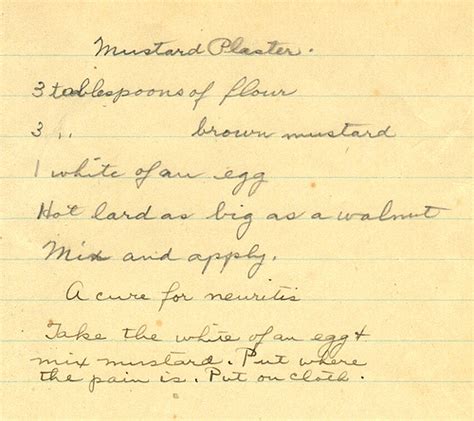 Mustard Plaster.
3 tablespoons of flour
3 " brown mustard
1 white of an egg
Hot lard as big as a walnut
Mix and apply.
A cure for neuritis
Take the white of an egg &
mix mustard. Put where
the pain is. Put on cloth.